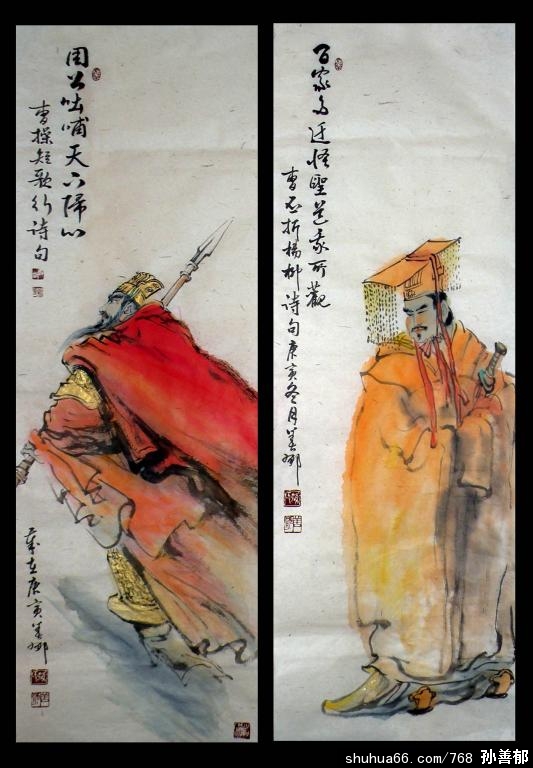 周公吐哺天下歸心
曹操短歌行诗句
歲在庚寅善郁
百家多迂怪聖道我所觀
曹丕折楊柳诗句庚寅冬月善郁
shuhua66.com/768 孙善郁